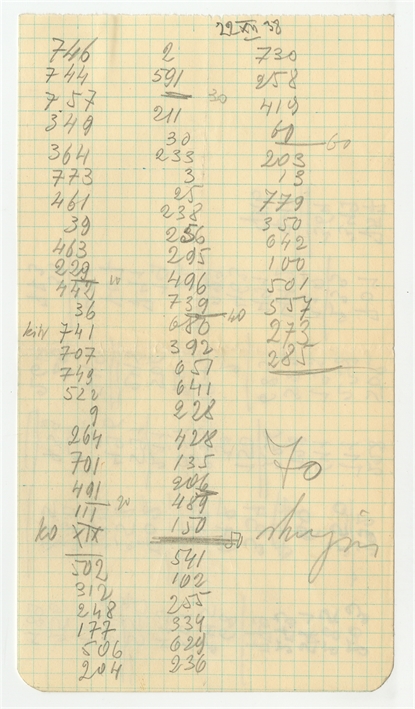 22 XII 38
746
744
757
349
364
773
461
39
463
229
442 10
36
741
707
749
522
9
264
701
491
111 20
XIX
502
312
248
177
506
204
2
591
30
211
30
233
3
25
238
256
295
496
739
40
680
392
651
641
228
428
135
206
489
150
50
541
102
255
339
629
236
730
258
419
60
60
203
13
779
350
642
100
501
557
273
285
70